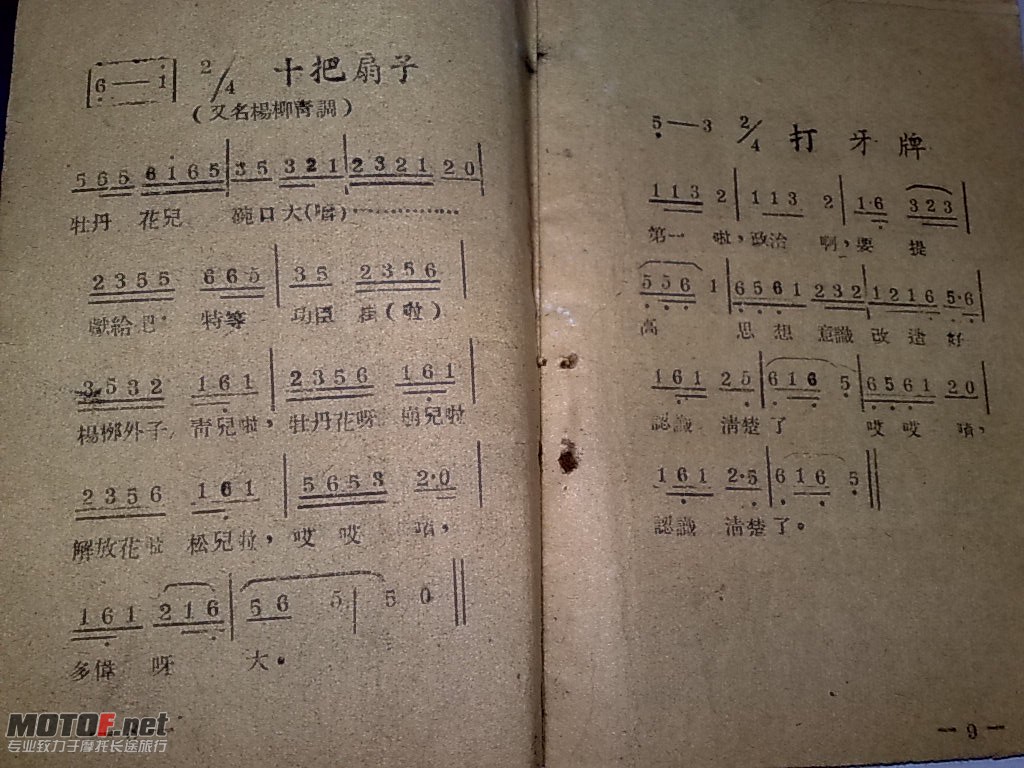 6 — 1 2/4 十把扇子
(又名楊柳靑調)
5 6 5 6 1 6 5 | 3 5 3 2 1 | 2 3 2 1 2 0 |
牡丹 花兒 碗口大(喲)……………
2 3 5 5 6 6 5 | 3 5 2 3 5 6 |
獻給 特等 功臣 掛(啦)
3 5 3 2 1 6 1 | 2 3 5 6 1 6 1 |
楊柳外子 靑兒啦,牡丹花呀 兒啦
2 3 5 6 1 6 1 | 5 6 5 3 2·0 |
解放花啦 松兒拉,哎 哎 唷,
1 6 1 2 1 6 | 5 6 5 | 5 0 ‖
多偉 呀 大。
5 — 3 2/4 打牙牌
1 1 3 2 | 1 1 3 2 | 1·6 3 2 3 |
第一 啦,政治 啊,要 提
5 5 6 1 | 6 5 6 1 2 3 2 | 1 2 1 6 5·6 |
高 思 想 意識 改 造 好
1 6 1 2 5 | 6 1 6 5 | 6 5 6 1 2 0 |
認識 淸楚了 哎 哎 唷,
1 6 1 2·5 | 6 1 6 5 ‖
認識 淸楚了。
－9－
MOTOF.net
专业致力于摩托长途旅行